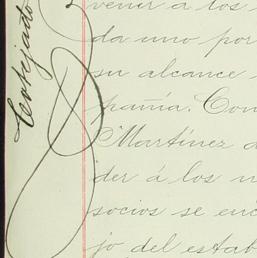 Cotejado
vener á los
da uno por
su alcance
pañía. Con
Martínez d
der á los n
socios se enc
jo del estab